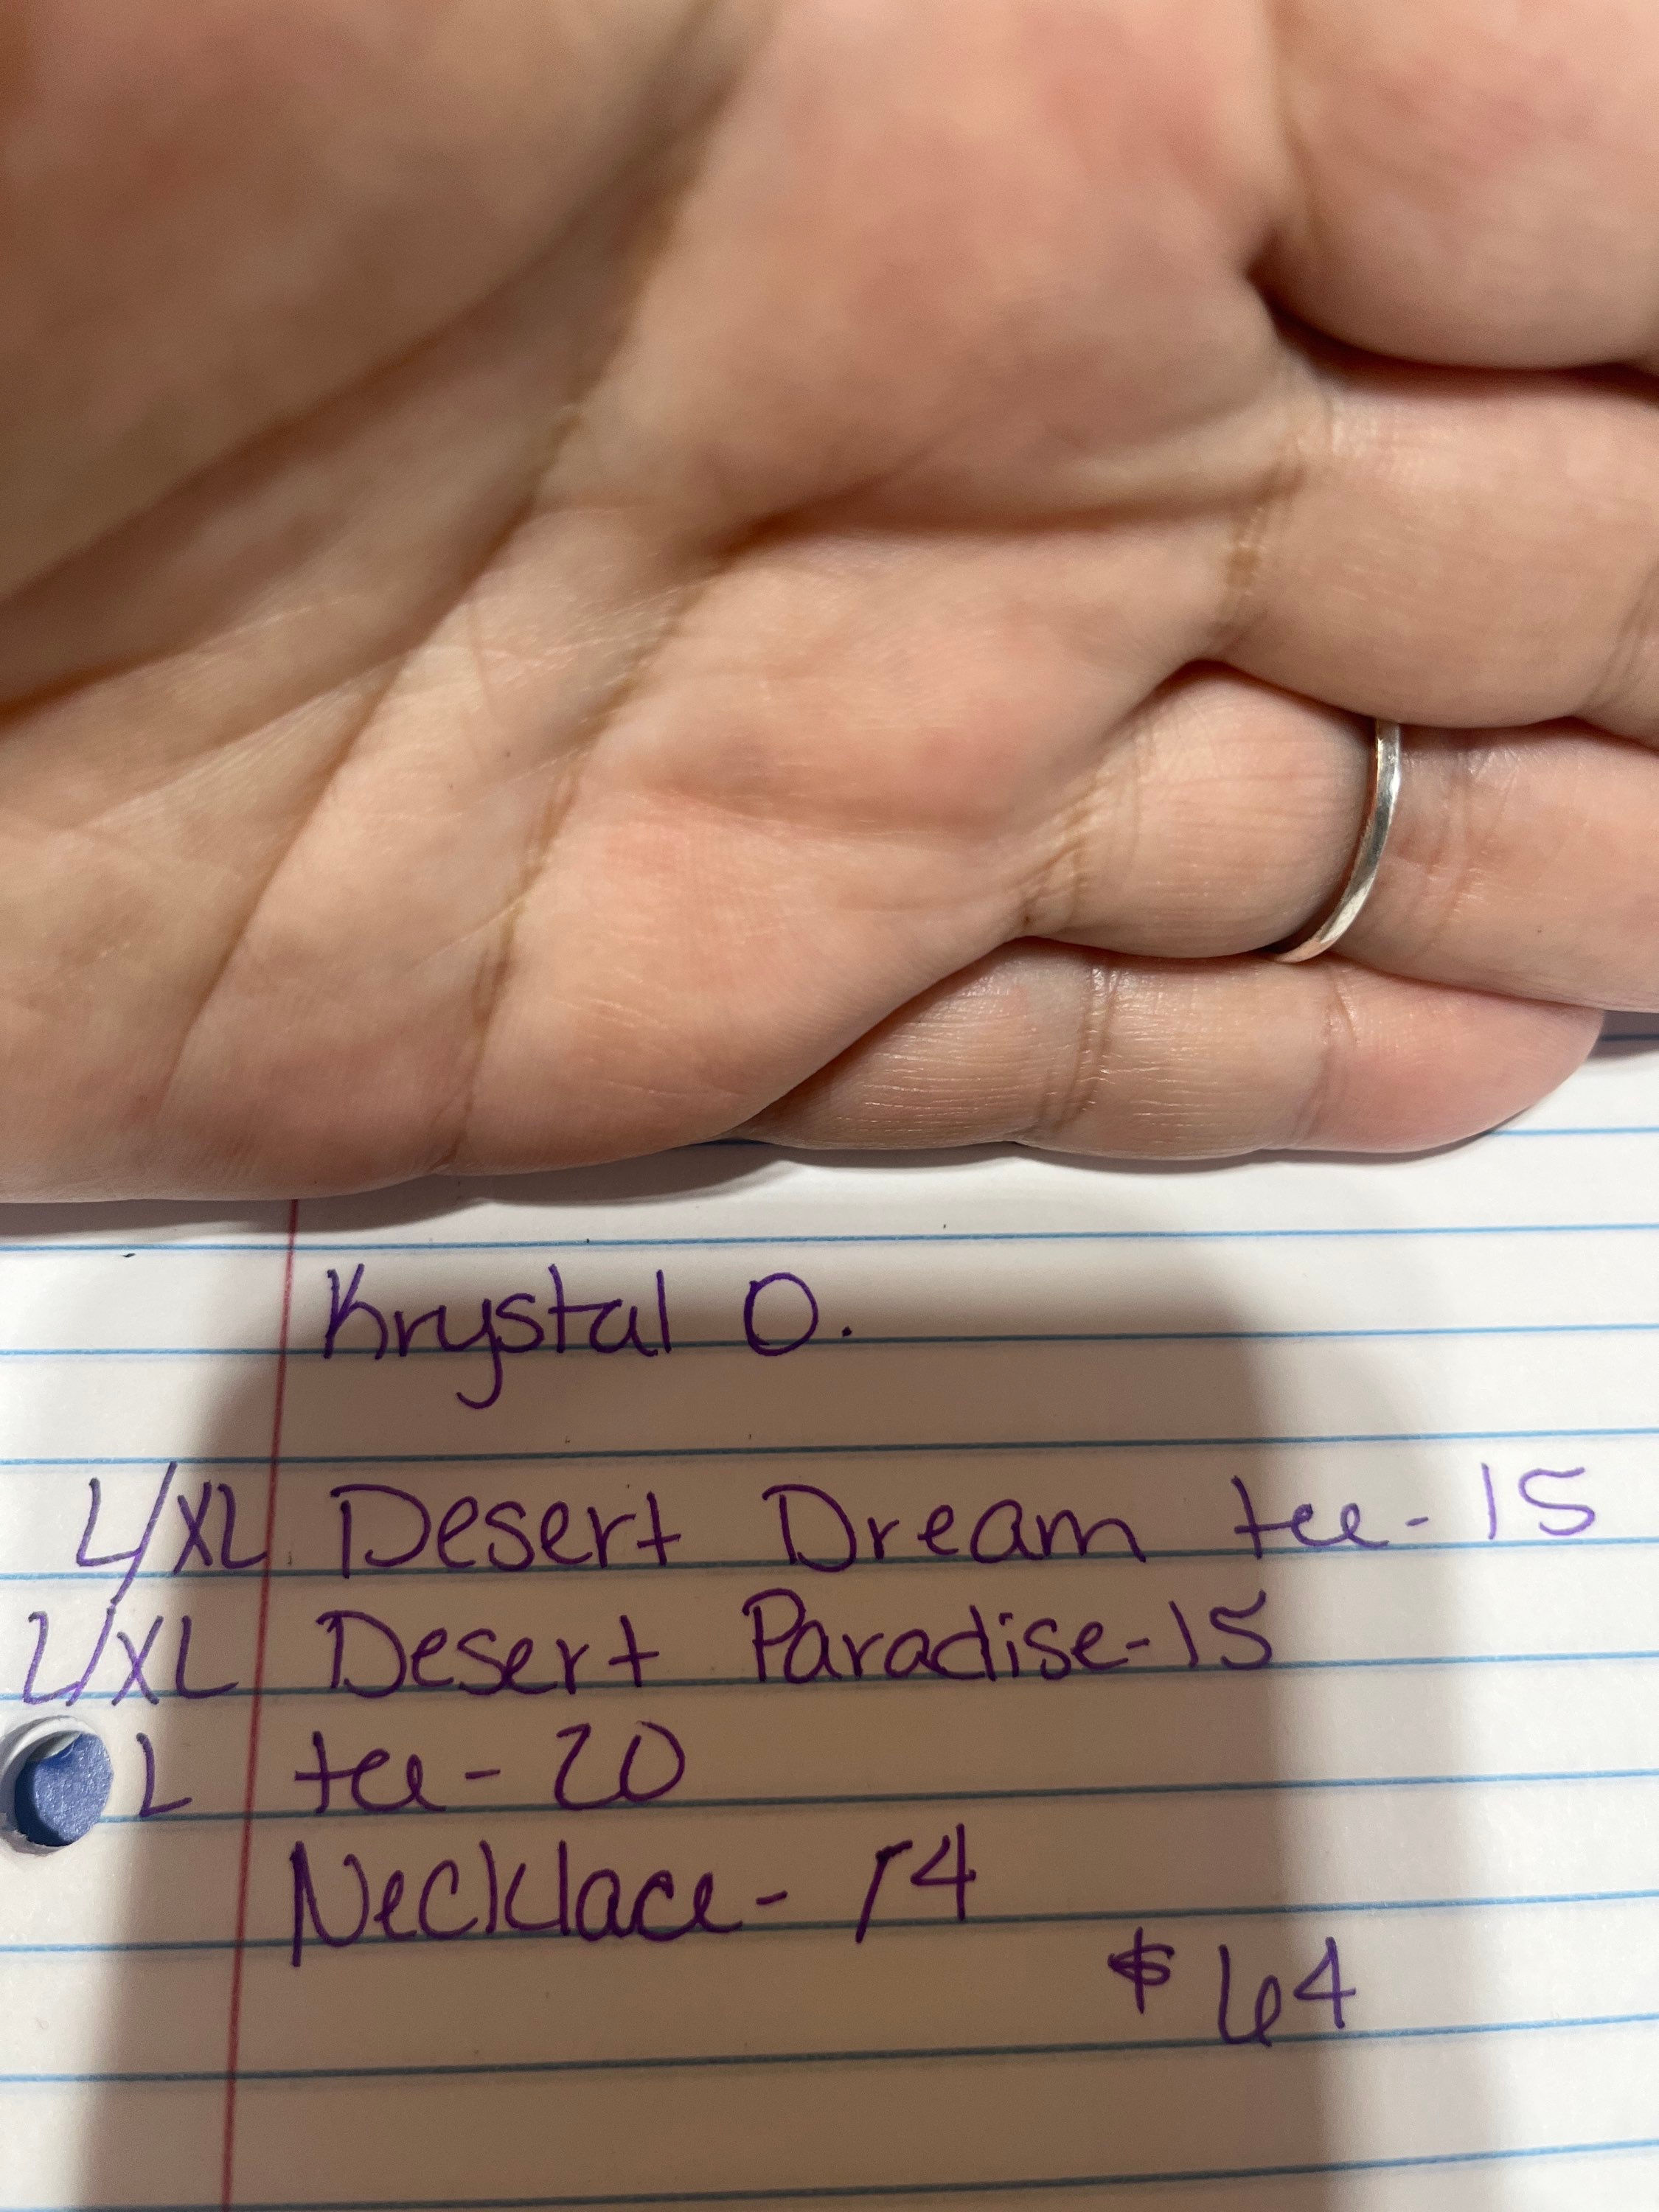 Krystal O.
L/XL Desert Dream tee - 15
L/XL Desert Paradise - 15
L tee - 20
Necklace - 14
$ 64